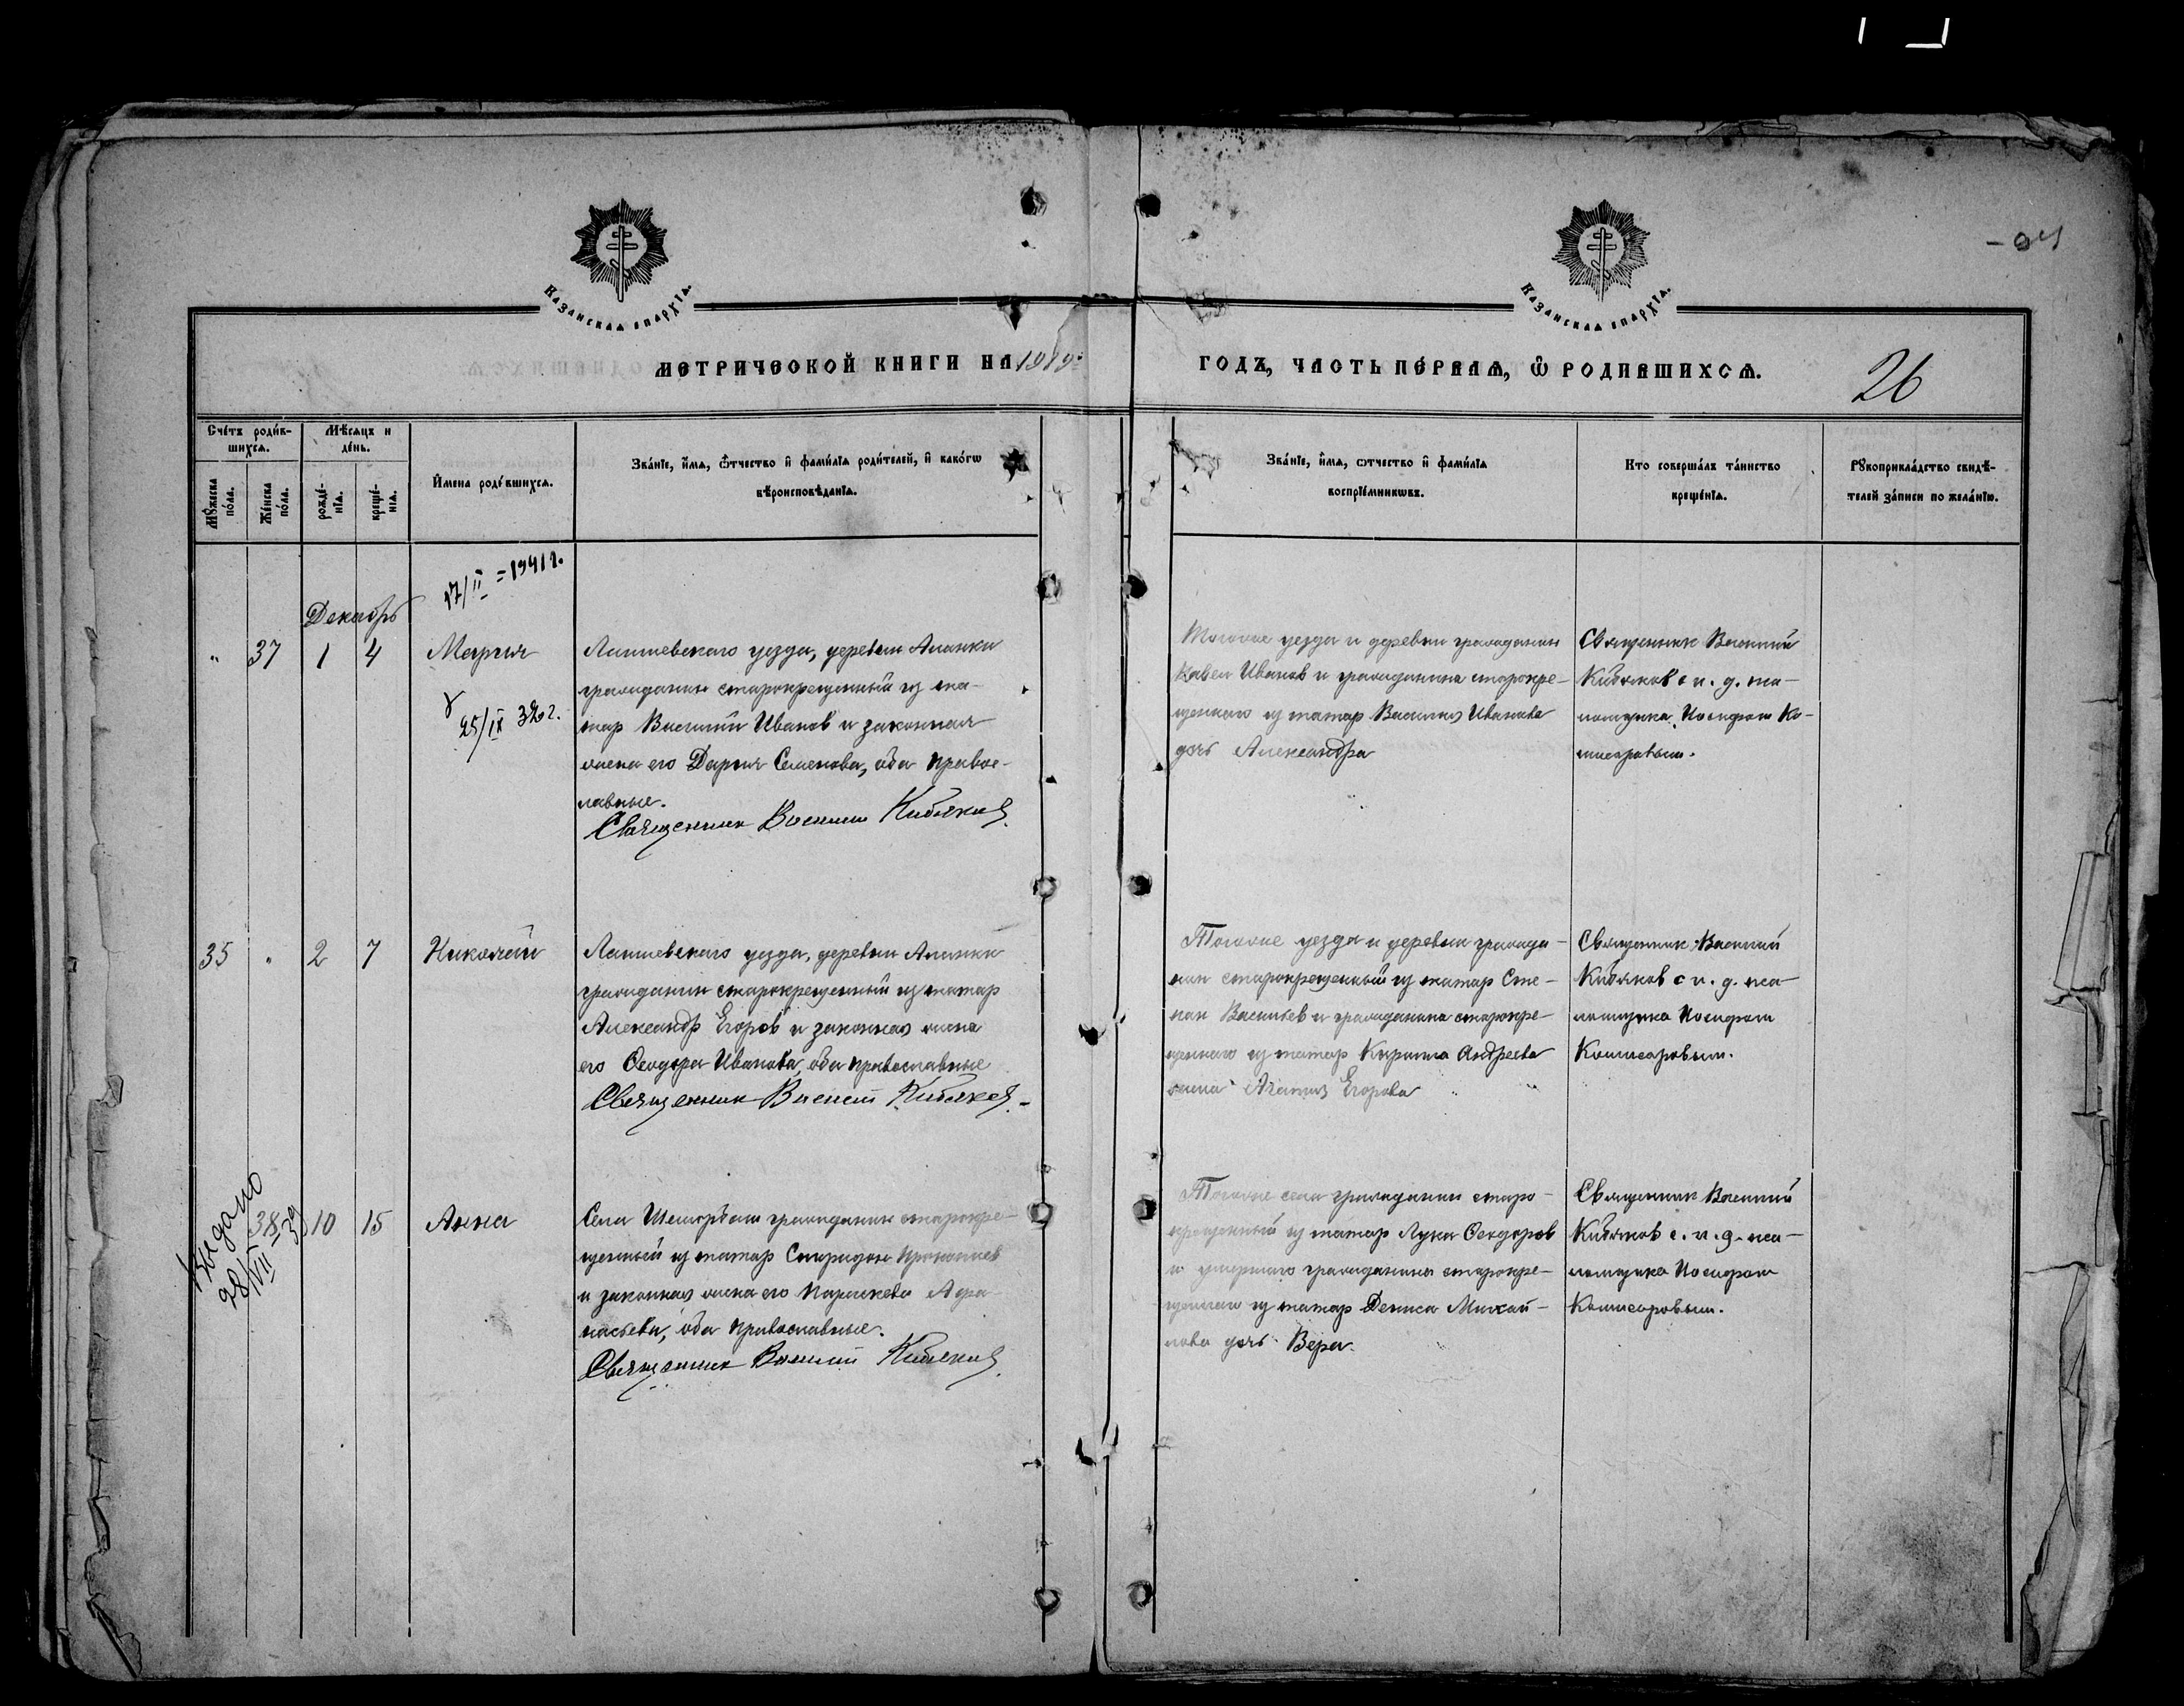 КАЗАНСКАЯ ЕПАРХІЯ.
КАЗАНСКАЯ ЕПАРХІЯ.
МЕТРИЧЕСКОЙ КНИГИ НА 1919
ГОДЪ, ЧАСТЬ ПЕРВАЯ, Ѿ РОДИВШИХСЯ.
26
Счетъ родившихся.
Мѣсяцъ и день.
Мужеска пола.
Женска пола.
рожденія.
крещенія.
Имена родившихся.
Званіе, имя, отчество и фамилія родителей, и какогѡ
вѣроисповѣданія.
Званіе, имя, отчество и фамилія
воспріемниковъ.
Кто совершалъ таинство
крещенія.
Рукоприкладство свидѣ-
телей записи по желанію.
17/II = 1941 г.
Декабрь
" 37 1 4 Мария
25/IX 32 г.
Лаишевского уезда, деревни Аланки
гражданин старокрещенный из та-
тар Василий Иванов и законная
жена его Дария Семенова, оба право-
славные.
Священник Василий Кибяков.
Тогоже уезда и деревни гражданин
Павел Иванов и гражданина старокре-
щенного из татар Василия Иванова
дочь Александра
Священник Василий
Кибяков с и. д. пса-
ломщика Иосифом Ко-
мисаровым.
35 " 2 7 Николай
Лаишевского уезда, деревни Аланки
гражданин старокрещенный из татар
Александр Егоров и законная жена
его Феодора Иванова, оба православные
Священник Василий Кибяков.
Тогоже уезда и деревни гражда-
нин старокрещенный из татар Сте-
пан Васильев и гражданина старокре-
щенного из татар Кирилла Андреева
жена Агапия Егорова
Священник Василий
Кибяков с и. д. пса-
ломщика Иосифом
Комисаровым.
Выдано
28/VII-39
38 10 15 Анна
Села Шеморбаш гражданин старокре-
щенный из татар Спиридон Прокопиев
и законная жена его Параскева Афа-
насьева, оба православные.
Священник Василий Кибяков.
Тогоже села гражданин старо-
крещенный из татар Лука Феодоров
и умершего гражданина старокре-
щенного из татар Дениса Михай-
лова дочь Вера
Священник Василий
Кибяков с. и. д. пса-
ломщика Иосифом
Комисаровым.